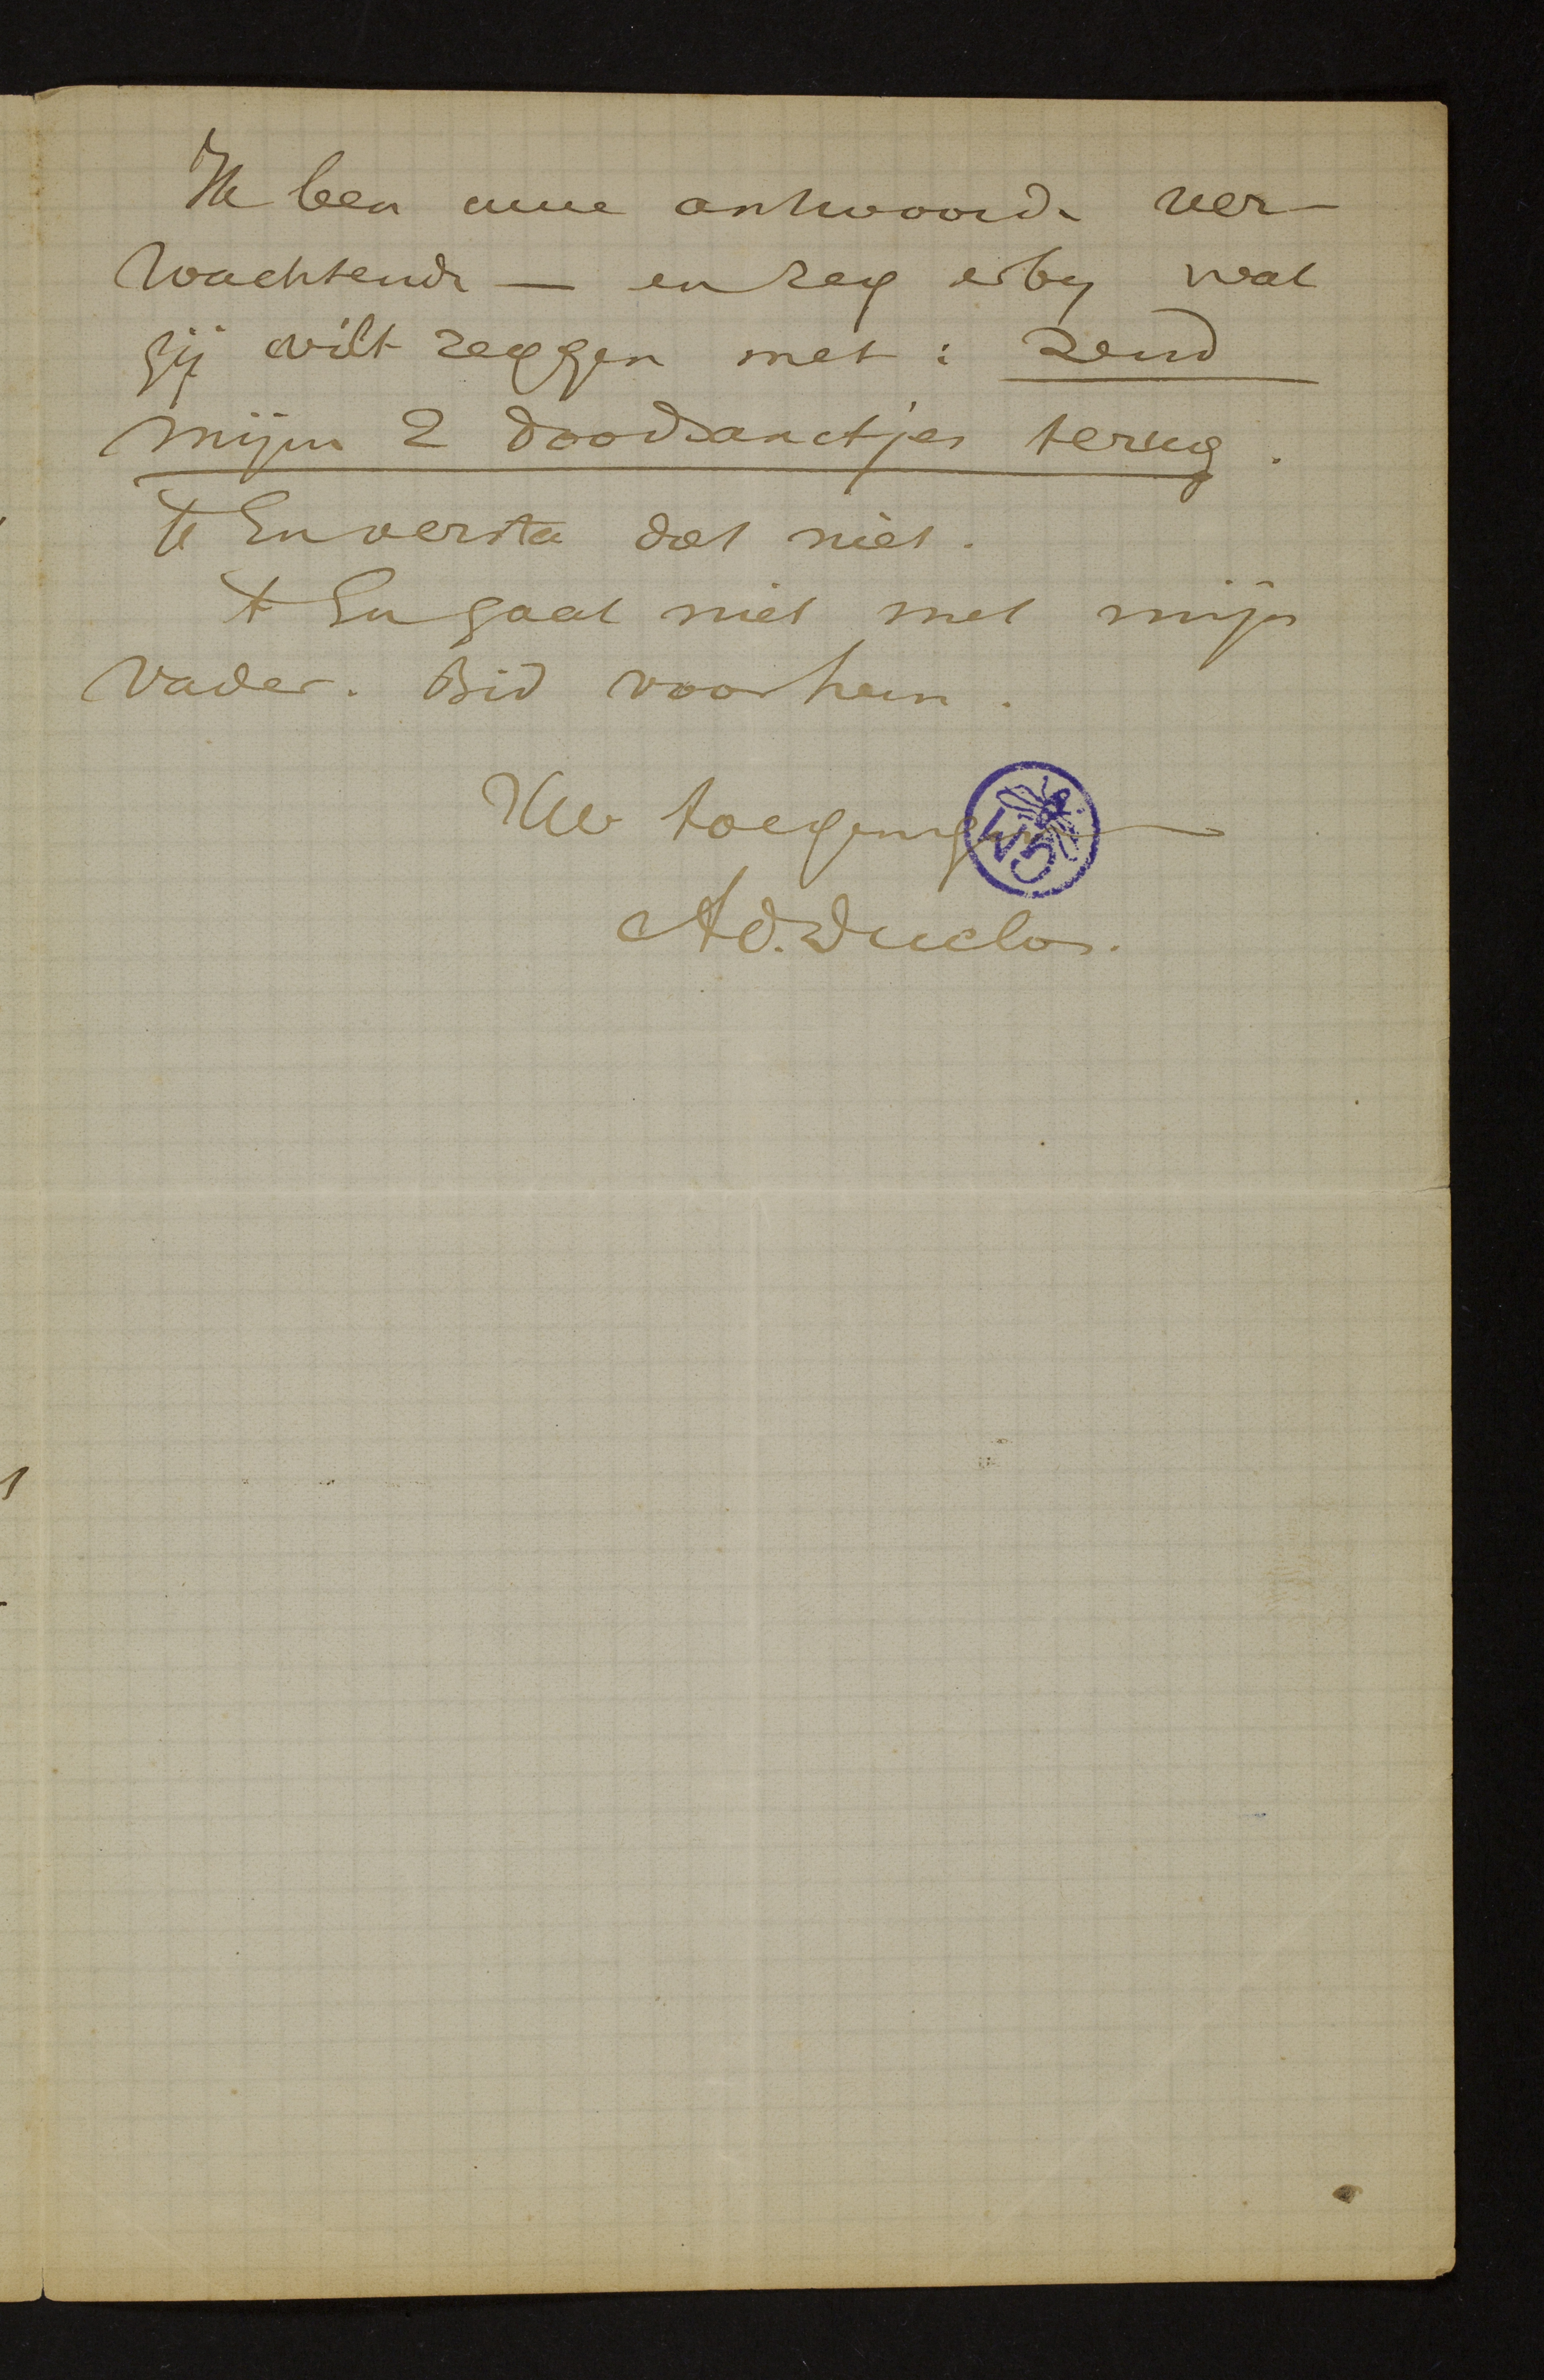 Ik ben uwe antwoorde ver-
wachtende — en zeg erby wat
gij wilt zeggen met : zend
mijn 2 doodsanctjes terug .
'k En versta dat niet .
't En gaat niet met mijn
vader . Bid voor hem .
Uw toegenegen
Ad. Duclos .
GM